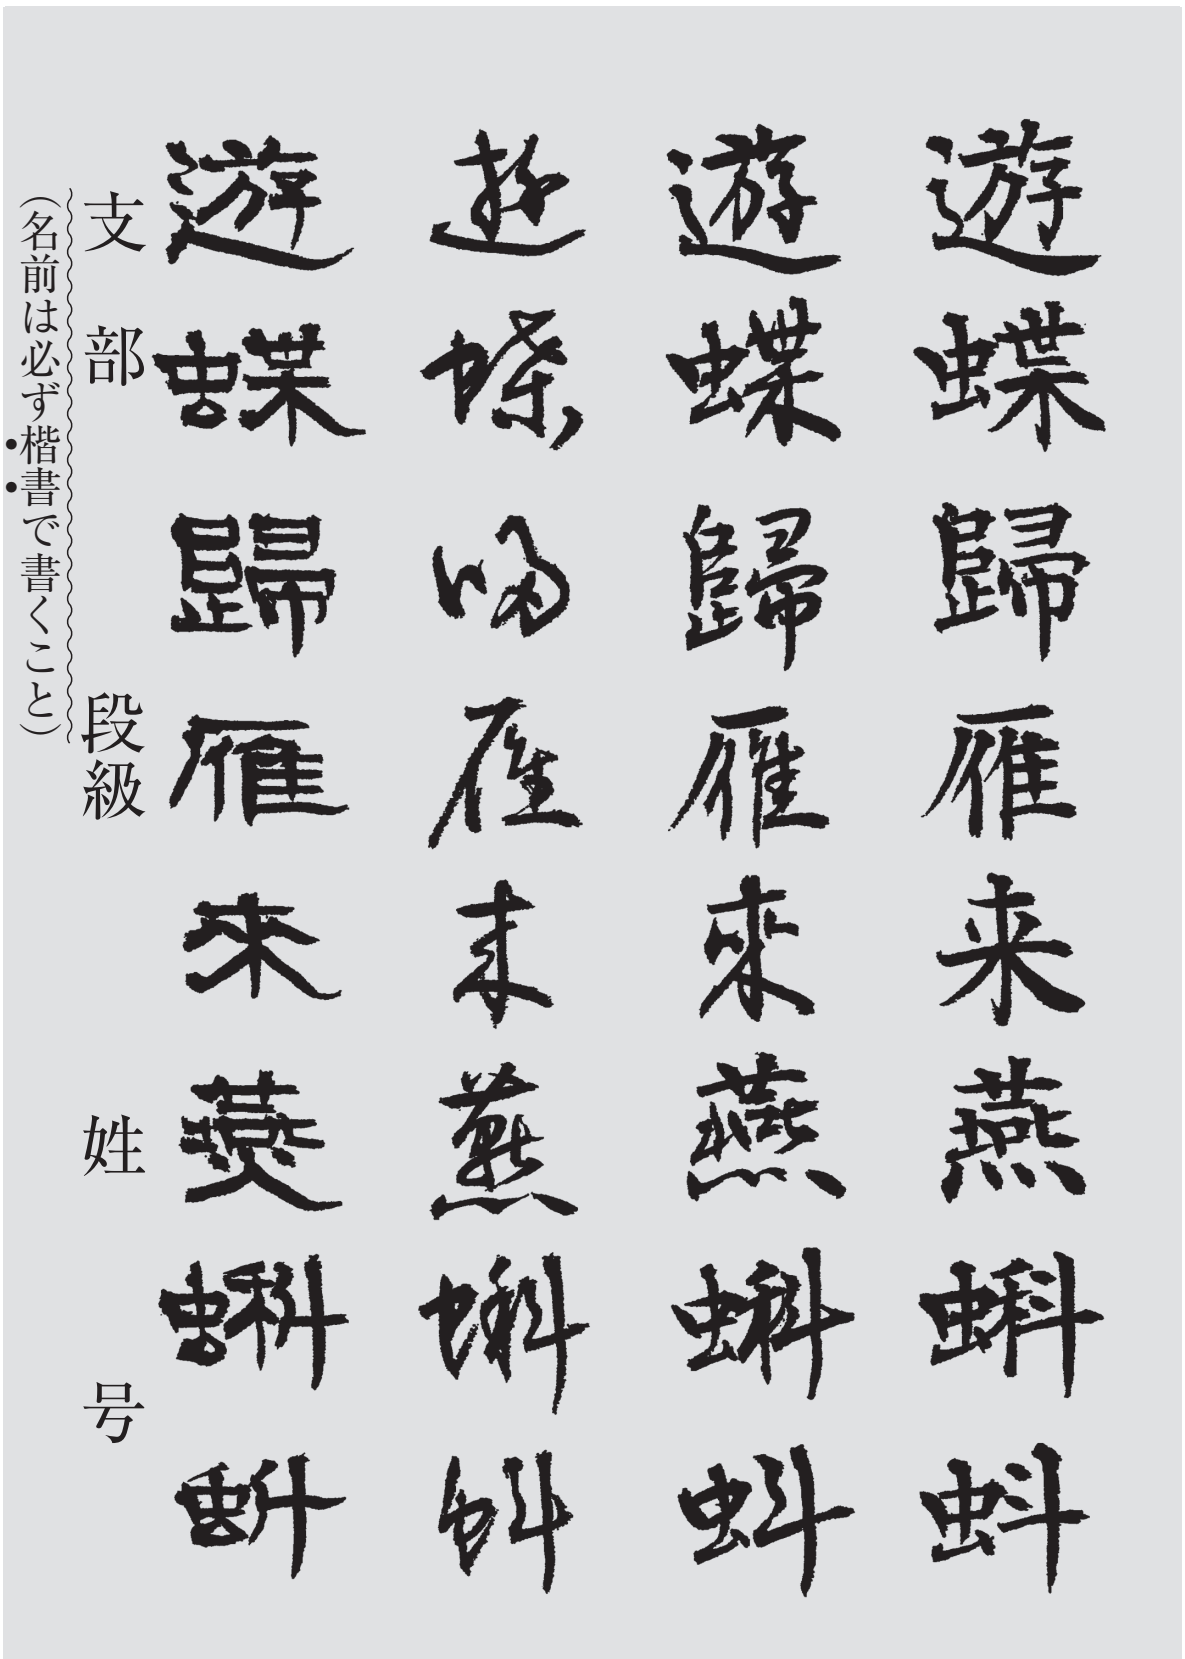 遊蝶歸雁来燕蝌蚪
遊蝶歸雁來燕蝌蚪
遊蝶帰雁来燕蝌蚪
遊蝶歸雁來燕蝌蚪
支部 段級 姓 号
（名前は必ず楷書で書くこと）